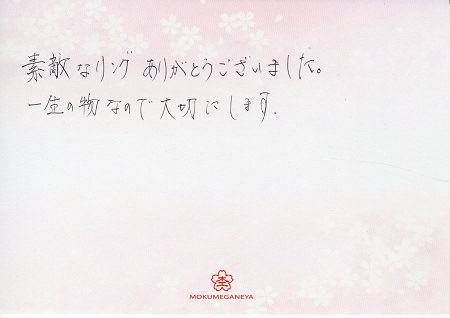 素敵なリングありがとうございました。
一生の物なので大切にします.
MOKUMEGANEYA